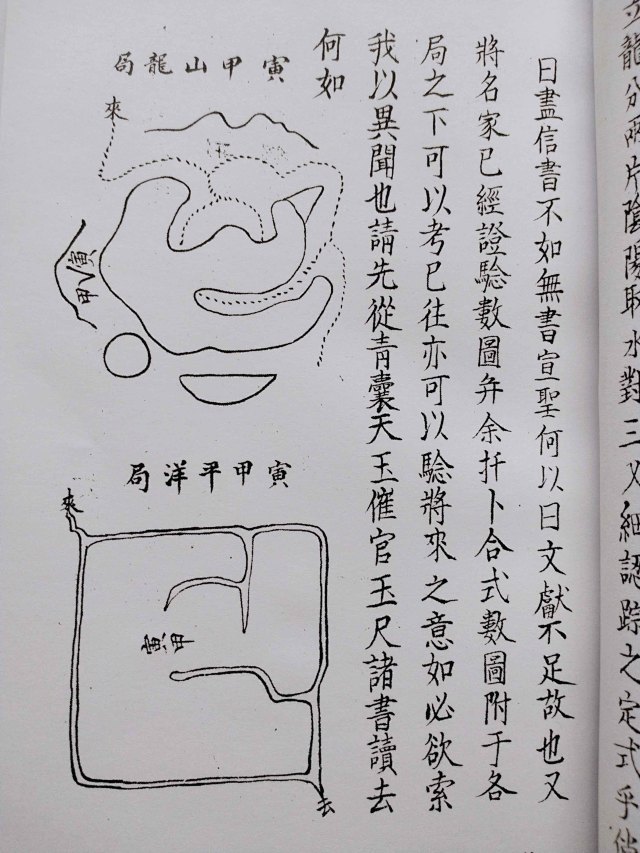 多龍分兩片陰陽取水對三叉細認踪之定式乎倘
曰盡信書不如無書宣聖何以曰文獻不足故也又
將名家已經證驗數圖弁余扦卜合式數圖附于各
局之下可以考已往亦可以驗將來之意如必欲索
我以異聞也請先從青囊天玉催官玉尺諸書讀去
何如
寅甲山龍局
來
寅
甲
寅甲平洋局
來
甲
寅
去